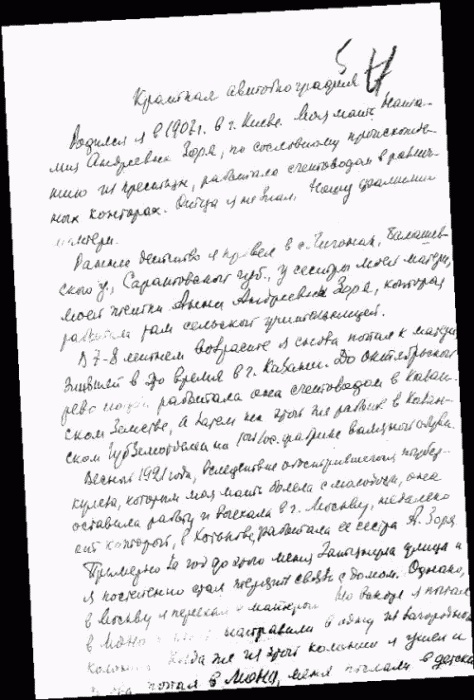 5
Краткая автобиография
Родился я в 1907 г. в г. Киеве. Моя мать, Ната-
лия Андреевна Зоря, по сословному происхожде-
нию из крестьян, работала счетоводом в различ-
ных конторах. Отца я не знал. Ношу фамилию
матери.
Раннее детство я провел в с. Балашев-
ского у., Саратовской губ., у сестры моей матери,
моей тетки Анны Андреевны Зоря, которая
работала там сельской учительницей.
В 7-8 летнем возрасте я снова попал к матери
жившей в то время в г. Казани. До октябрьской
рево работала она счетоводом в Казан-
ском Земстве, а затем
ском
Весной 1921 года, вследствие обострившегося тубер-
кулеза, которым моя мать болела с молодости, она
оставила работу и выехала в г. Москву, недалеко
от которой, в работала ее сестра А. Зоря.
Примерно за год до этого меня затянула улица и
я постепенно стал терять связь с домом. Однако,
в Москву я переехал с матерью. На вокзале я попал
в Моно направили в одну из загородных
колоний. Когда же из этой колонии я ушел и
попал в Моно, меня послали в детски